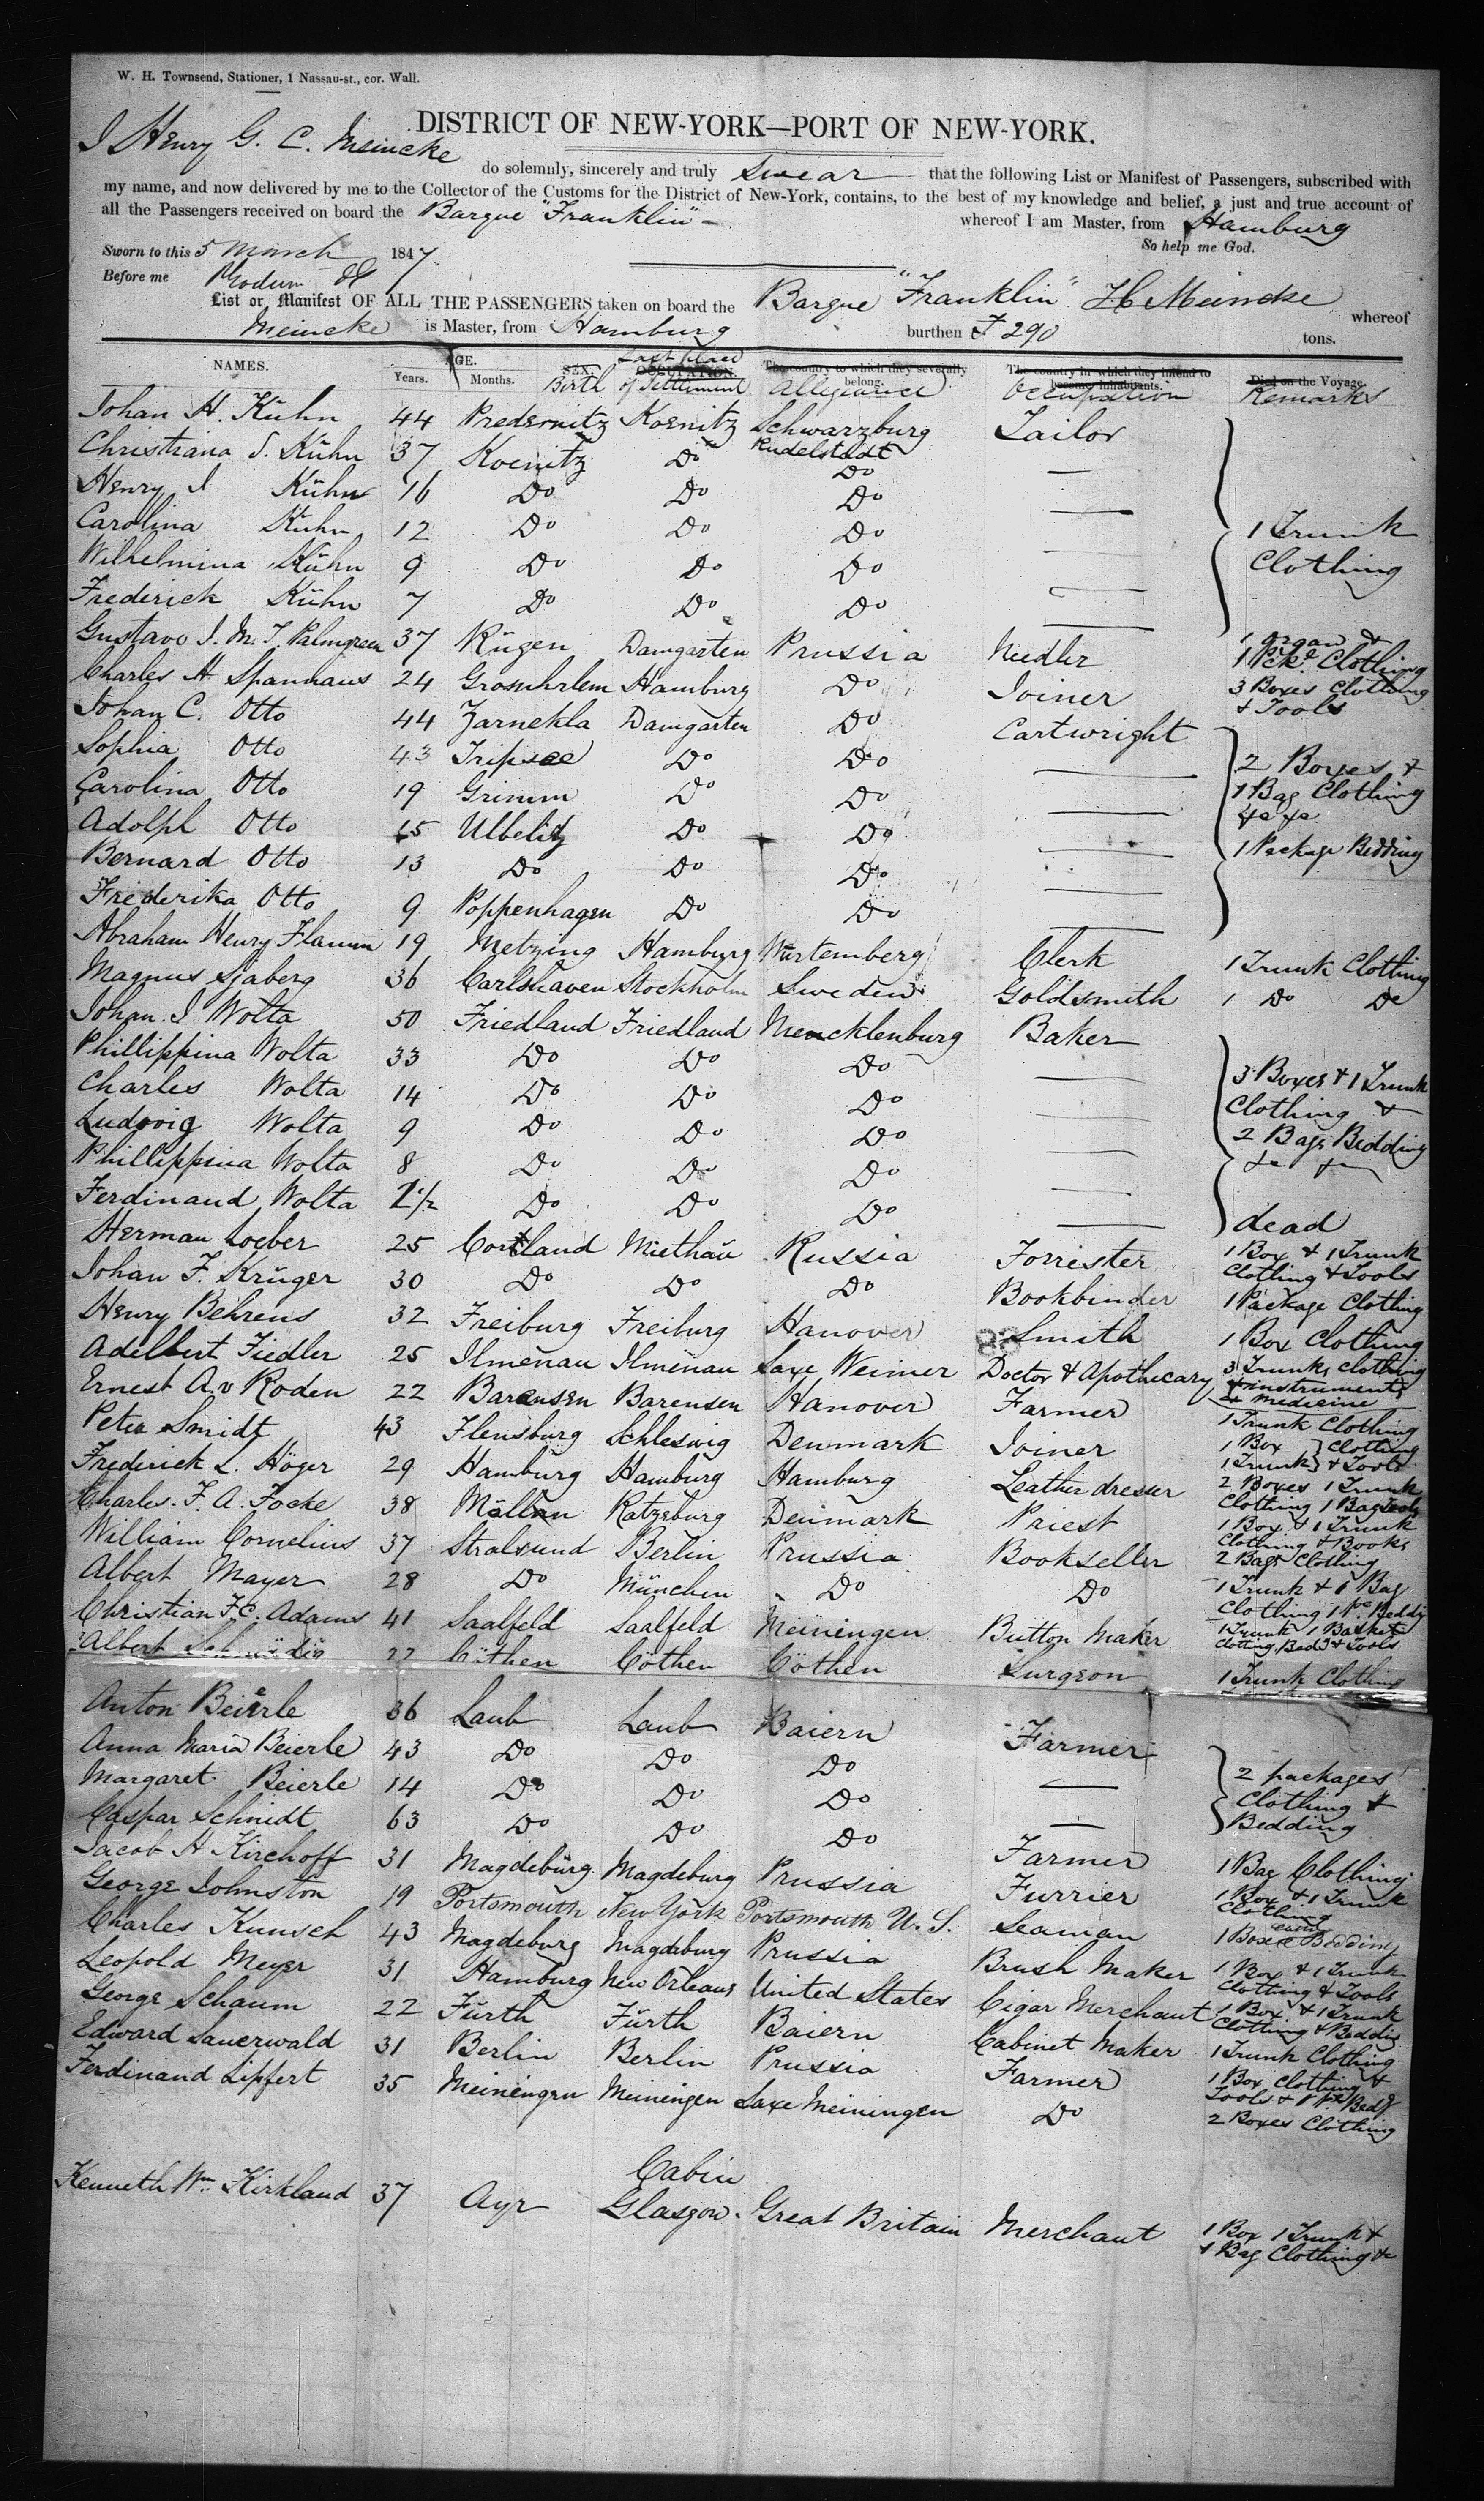 W. H. Townsend, Stationer, 1 Nassau-st., cor. Wall.
DISTRICT OF NEW-YORK—PORT OF NEW-YORK.
I Henry G. C. Meincke do solemnly, sincerely and truly swear that the following List or Manifest of Passengers, subscribed with
my name, and now delivered by me to the Collector of the Customs for the District of New-York, contains, to the best of my knowledge and belief, a just and true account of
all the Passengers received on board the Barque "Franklin" whereof I am Master, from Hamburg
So help me God.
Sworn to this 5 March 1847
Before me
List or Manifest OF ALL THE PASSENGERS taken on board the Barque "Franklin" H C Meincke whereof
Meincke is Master, from Hamburg burthen T 290 tons.
NAMES. AGE. Years. Months. SEX. Birth OCCUPATION. Last place of Settlement The country to which they severally belong. Allegiance The country in which they intend to become inhabitants. Occupation Died on the Voyage. Remarks
Johan H. Kühn 44 Predernitz Koenitz Schwarzburg Rudelstadt Tailor
Christiana S. Kühn 37 Koenitz Do Do —
Henry I Kühn 16 Do Do Do —
Carolina Kühn 12 Do Do Do — 1 Trunk
Wilhelmina Kühn 9 Do Do Do — Clothing
Frederick Kühn 7 Do Do Do —
Gustavo I. M. T. Palmgreen 37 Rügen Damgarten Prussia Needler 1 organ & 1 Pcke Clothing
Charles H Spanhaus 24 Hamburg Do Joiner 3 Boxes Clothing & Tools
Johan C. Otto 44 Zarnekla Damgarten Do Cartwright
Sophia Otto 43 Tripsee Do Do — 2 Boxes &
Carolina Otto 19 Grimm Do Do — 1 Bag Clothing
Adolph Otto 15 Ulbelitz Do Do — &c &c
Bernard Otto 13 Do Do Do — 1 Package Bedding
Friederika Otto 9 Poppenhagen Do Do —
Abraham Henry Flamm 19 Metzing Hamburg Würtemberg Clerk 1 Trunk Clothing
Magnus Sjaberg 36 Carlshaven Stockholm Sweden Goldsmith 1 Do Do
Johan I Wolta 50 Friedland Friedland Mencklenburg Baker
Phillippina Wolta 33 Do Do Do — 3 Boxes & 1 Trunk
Charles Wolta 14 Do Do Do — Clothing &
Ludwig Wolta 9 Do Do Do — 2 Bags Bedding
Phillippina Wolta 8 Do Do Do — &c &c
Ferdinand Wolta 1 1/2 Do Do Do — dead
Herman Loeber 25 Cortland Miethau Russia Forrester 1 Box & 1 Trunk Clothing & Tools
Johan F. Krüger 30 Do Do Do Bookbinder 1 Package Clothing
Henry Behrens 32 Freiburg Freiburg Hanover Smith 1 Box Clothing
Adelbert Fiedler 25 Ilmenau Ilmenau Saxe Weimer Doctor & Apothecary 3 Trunks Clothing & instruments & Medicine
Ernest A. v Roden 22 Barensen Barensen Hanover Farmer 1 Trunk Clothing
Peter Smidt 43 Flensburg Schleswig Denmark Joiner 1 Box 1 Trunk } Clothing & Tools
Frederick L. Höger 29 Hamburg Hamburg Hamburg Leather dresser 2 Boxes 1 Trunk Clothing 1 Bag Tools
Charles. F. A. Focke 38 Mölln Ratzeburg Denmark Priest 1 Box & 1 Trunk Clothing & Books
William Cornelius 37 Stralsund Berlin Prussia Bookseller 2 Bags Clothing
Albert Mayer 28 Do München Do Do 1 Trunk & 1 Bag Clothing 1 Pce Bedding
Christian F. C. Adams 41 Saalfeld Saalfeld Meiningen Button Maker 1 Trunk 1 Basket Clothing, Bedd & Tools
Albert 27 Cöthen Cöthen Cöthen Surgeon 1 Trunk Clothing
Anton Beierle 36 Laub Laub Baiern Farmer
Anna Maria Beierle 43 Do Do Do — 2 packages
Margaret Beierle 14 Do Do Do — Clothing & Bedding
Caspar Schmidt 63 Do Do Do Farmer 1 Bag Clothing
Jacob H Kirchoff 31 Magdeburg Magdeburg Prussia Furrier 1 Box & 1 Trunk Clothing
George Johnston 19 Portsmouth New York Portsmouth U. S. Seaman 1 Box Bedding
Charles Kunsch 43 Magdeburg Magdeburg Prussia Brush Maker 1 Box & 1 Trunk Clothing & Tools
Leopold Meyer 31 Hamburg New Orleans United States Cigar Merchant 1 Box & 1 Trunk Clothing & Bedding
George Schaum 22 Fürth Fürth Baiern Cabinet Maker 1 Trunk Clothing
Edward Sauerwald 31 Berlin Berlin Prussia Farmer 1 Box Clothing & Tools & 1 Pce Bedd
Ferdinand Lipfert 35 Meiningen Meiningen Saxe Meiningen Do 2 Boxes Clothing
Cabin
Kenneth Wm. Kirkland 37 Ayr Glasgow. Great Britain Merchant 1 Box 1 Trunk & 1 Bag Clothing &c